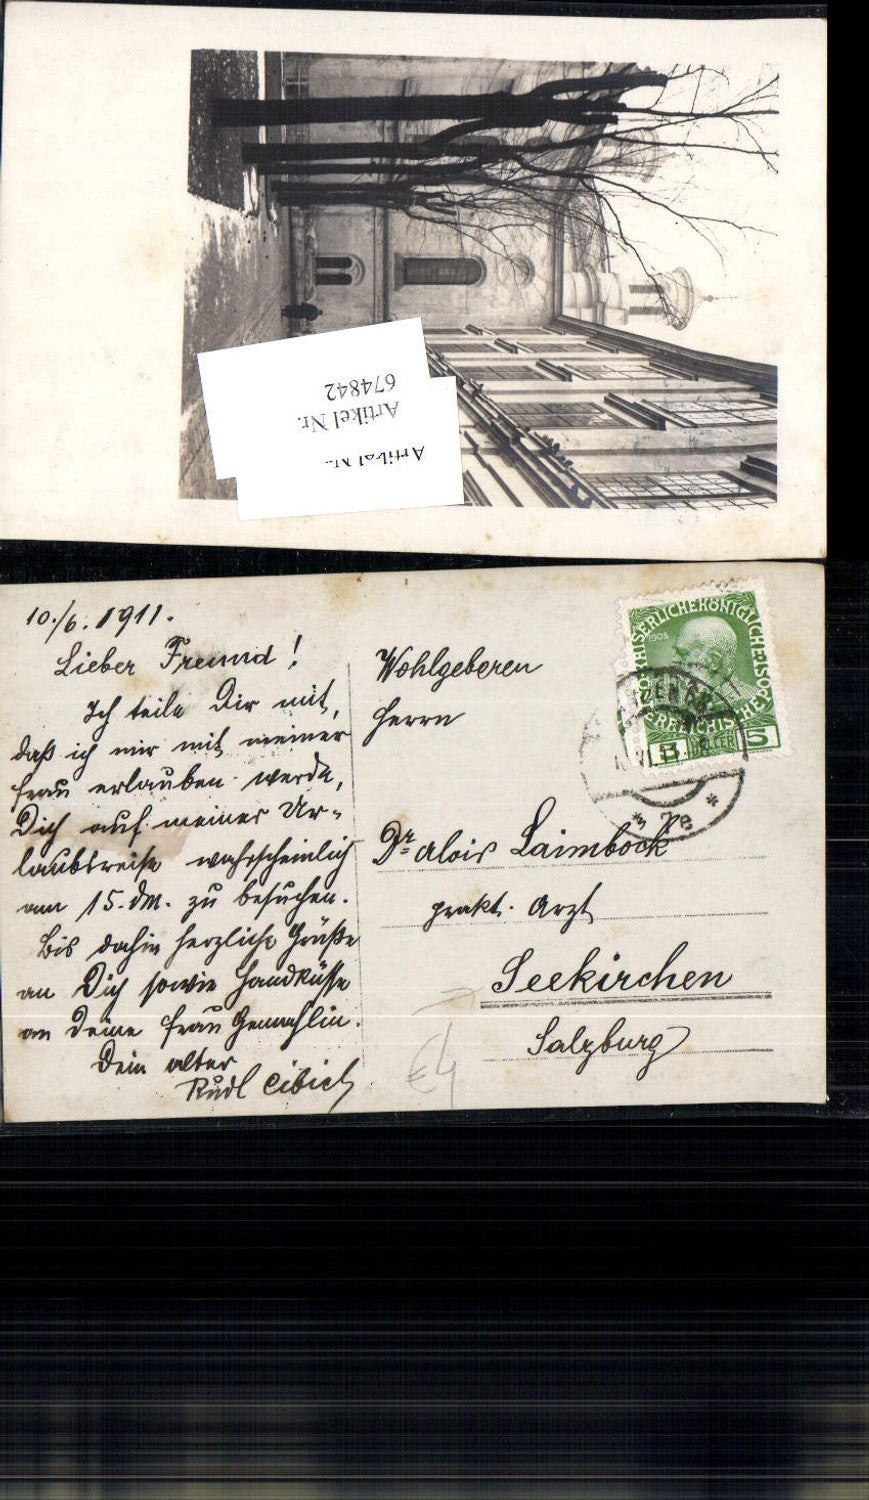 Artikel Nr.
674842
10./6. 1911.
Lieber Freund!
Ich teile Dir mit,
daß ich mir mit meiner
Frau erlauben werde,
Dich auf meiner Ur-
laubsreise wahrscheinlich
am 15. dM. zu besuchen.
Bis dahin herzliche Grüße
an Dich sowie Handküsse
an Deine Frau Gemahlin.
Dein alter
Rudl Cibich
KAISERLICHEKÖNIGLICHE
1908
ÖSTERREICHISCHE POST
5 HELLER 5
* 7e *
Wohlgeboren
Herrn
Dr. Alois Laimbock
prakt. Arzt
Seekirchen
Salzburg